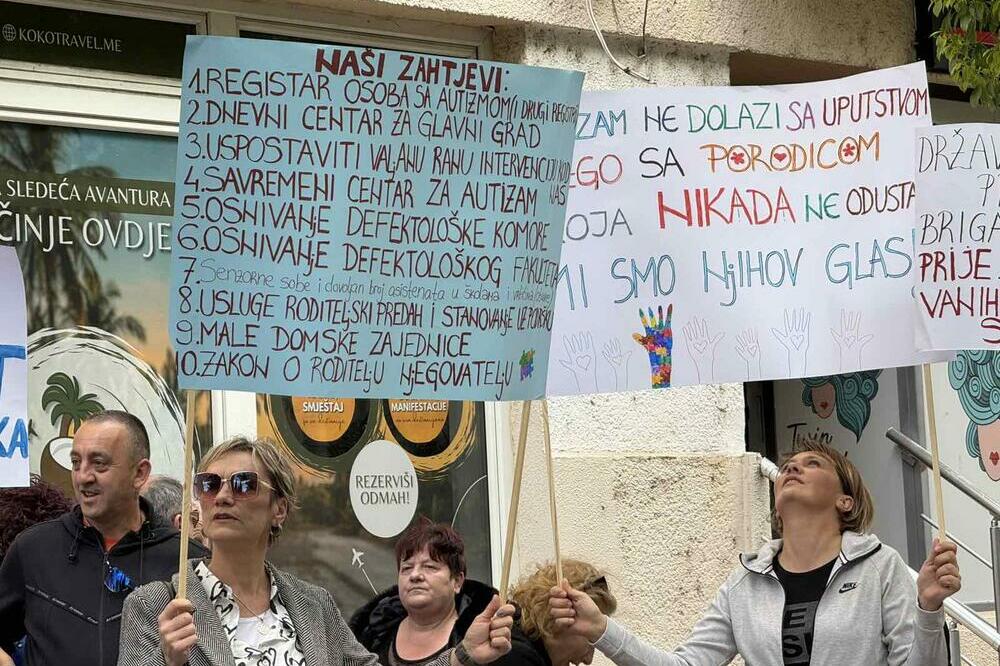 KOKOTRAVEL.ME
SLEDEĆA AVANTURA
ČINJE OVDJE
NAŠI ZAHTJEVI:
1. REGISTAR OSOBA SA AUTIZMOM (I DRUGI REGISTRI
2. DNEVNI CENTAR ZA GLAVNI GRAD
3. USPOSTAVITI VALJANU RANU INTERVENCIJU KOD
4. SAVREMENI CENTAR ZA AUTIZAM NAS
5. OSNIVANJE DEFEKTOLOŠKE KOMORE
6. OSNIVANJE DEFEKTOLOŠKOG FAKULTETA
7. Senzorne sobe i dovoljan broj asistenata u školama i
8. USLUGE RODITELJSKI PREDAH I STANOVANJE UZ
9. MALE DOMSKE ZAJEDNICE
10. ZAKON O RODITELJU NJEGOVATELJU
ZAM NE DOLAZI SA UPUTSTVOM
EGO SA PORODICOM
KOJA NIKADA NE ODUSTA
MI SMO NJIHOV GLAS
DRŽAV
P
BRIGA
PRIJE
VANIH
S
KA
SMJEŠTAJ
MANIFESTACIJE
REZERVIŠI
ODMAH!
Twin